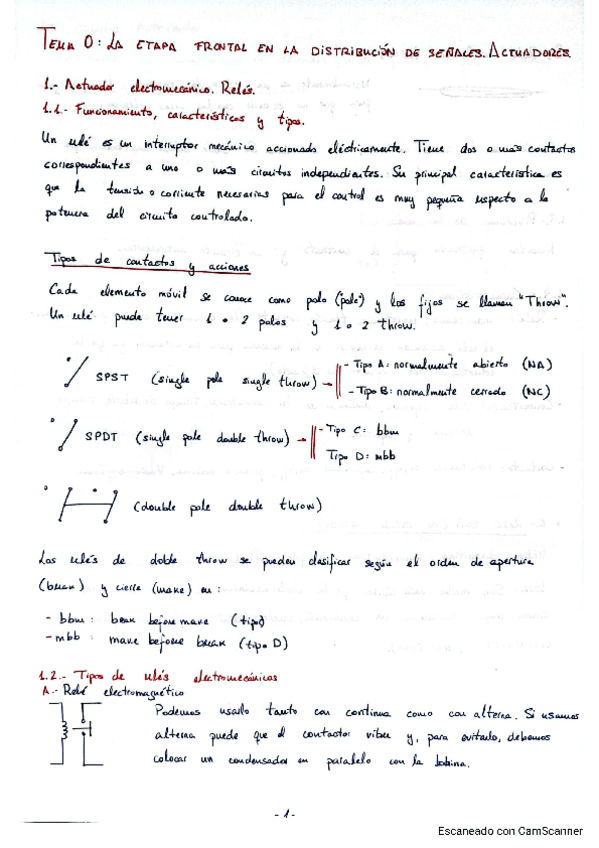 TEMA 0: LA ETAPA FRONTAL EN LA DISTRIBUCIÓN DE SEÑALES. ACTUADORES.
1.- Actuador electromecánico. Relés.
1.1.- Funcionamiento, características y tipos.
Un relé es un interruptor mecánico accionado eléctricamente. Tiene dos o más contactos
correspondientes a uno o más circuitos independientes. Su principal característica es
que la tensión o corriente necesarias para el control es muy pequeña respecto a la
potencia del circuito controlado.
Tipos de contactos y acciones
Cada elemento móvil se conoce como polo ("pole") y los fijos se llaman "Throw".
Un relé puede tener 1 o 2 polos y 1 o 2 throw.
SPST (single pole single throw) → - Tipo A: normalmente abierto (NA)
- Tipo B: normalmente cerrado (NC)
SPDT (single pole double throw) → - Tipo C: bbm
Tipo D: mbb
(double pole double throw)
Los relés de doble throw se pueden clasificar según el orden de apertura
(break) y cierre (make) en:
- bbm: break before make (tipo)
- mbb: make before break (tipo D)
1.2.- Tipos de relés electromecánicos
A.- Relé electromagnético
Podemos usarlo tanto con continua como con alterna. Si usamos
alterna puede que el contactor vibre y, para evitarlo, debemos
colocar un condensador en paralelo con la bobina.
- 1 -
Escaneado con CamScanner